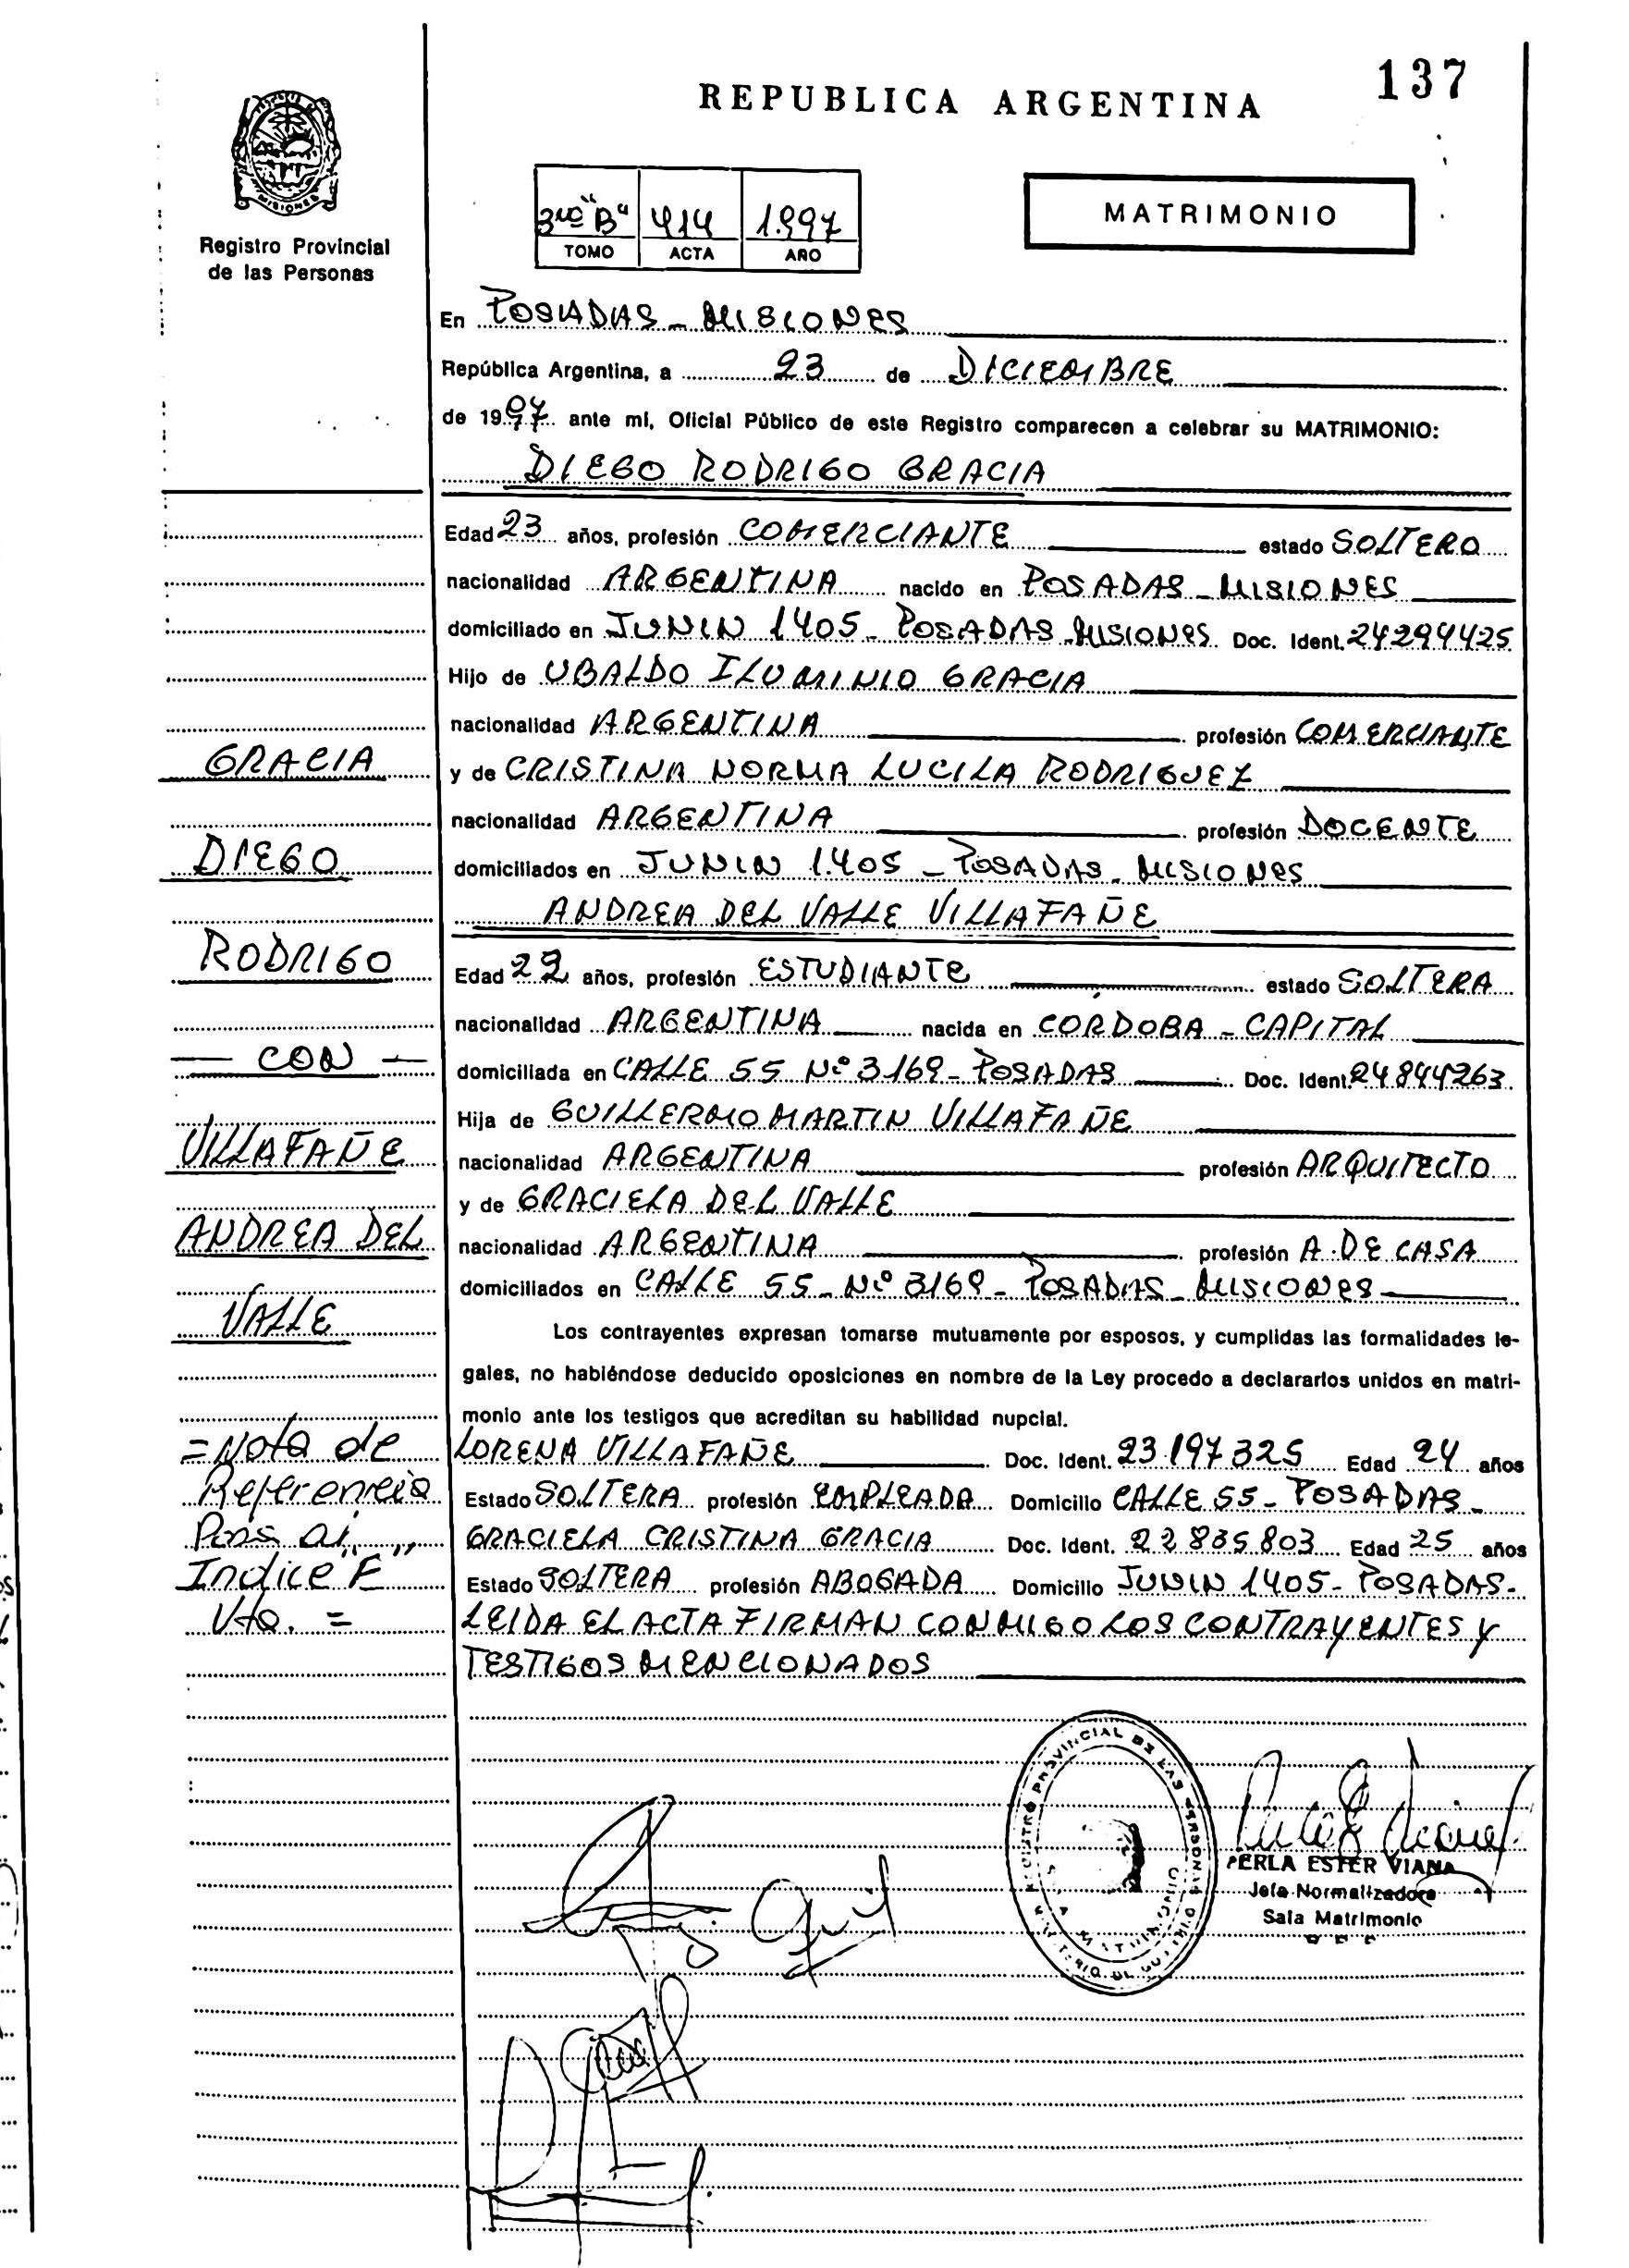 137
REPUBLICA ARGENTINA
MISIONES
Registro Provincial
de las Personas
3ro "B" 414 1.997
TOMO ACTA AÑO
MATRIMONIO
En POSADAS - MISIONES
República Argentina, a 23 de DICIEMBRE
de 1997 ante mi, Oficial Público de este Registro comparecen a celebrar su MATRIMONIO:
DIEGO RODRIGO GRACIA
Edad 23 años, profesión COMERCIANTE estado SOLTERO
nacionalidad ARGENTINA nacido en POSADAS - MISIONES
domiciliado en JUNIN 1405 - POSADAS - MISIONES Doc. Ident. 24294425
Hijo de UBALDO ILUMINIO GRACIA
nacionalidad ARGENTINA profesión COMERCIANTE
y de CRISTINA NORMA LUCILA RODRIGUEZ
nacionalidad ARGENTINA profesión DOCENTE
domiciliados en JUNIN 1.405 - POSADAS - MISIONES
ANDREA DEL VALLE VILLAFAÑE
Edad 22 años, profesión ESTUDIANTE estado SOLTERA
nacionalidad ARGENTINA nacida en CORDOBA - CAPITAL
domiciliada en CALLE 55 Nº 3169 - POSADAS Doc. Ident. 24844263
Hija de GUILLERMO MARTIN VILLAFAÑE
nacionalidad ARGENTINA profesión ARQUITECTO
y de GRACIELA DEL VALLE
nacionalidad ARGENTINA profesión A. DE CASA
domiciliados en CALLE 55 - Nº 3169 - POSADAS - MISIONES
Los contrayentes expresan tomarse mutuamente por esposos, y cumplidas las formalidades le-
gales, no habiéndose deducido oposiciones en nombre de la Ley procedo a declararlos unidos en matri-
monio ante los testigos que acreditan su habilidad nupcial.
LORENA VILLAFAÑE Doc. Ident. 23.197.325 Edad 24 años
Estado SOLTERA profesión EMPLEADA Domicilio CALLE 55 - POSADAS -
GRACIELA CRISTINA GRACIA Doc. Ident. 22835803 Edad 25 años
Estado SOLTERA profesión ABOGADA Domicilio JUNIN 1405 - POSADAS -
LEIDA EL ACTA FIRMAN CONMIGO LOS CONTRAYENTES Y
TESTIGOS MENCIONADOS
GRACIA
DIEGO
RODRIGO
— CON —
VILLAFAÑE
ANDREA DEL
VALLE
= Nota de
Referencia
Pasa al
Indice "F"
Vta. =
REGISTRO PROVINCIAL DE LAS PERSONAS
PERLA ESTER VIANA
Jefa Normalizadora
Sala Matrimonio